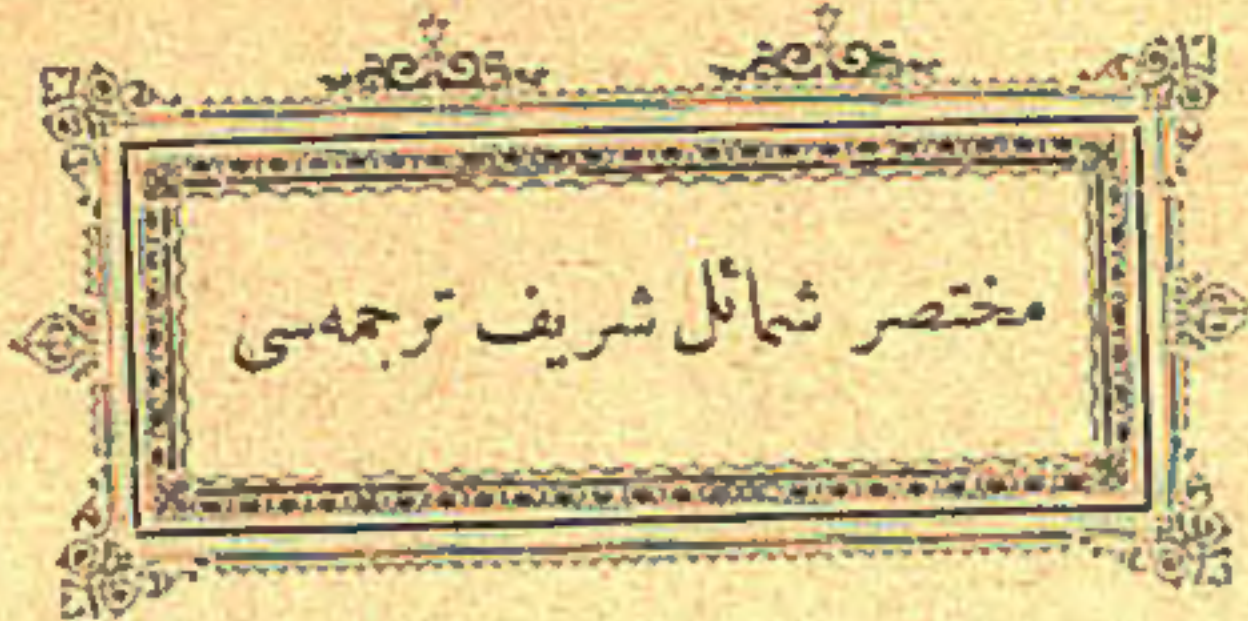 مختصر شمائل شريف ترجمه‌سی